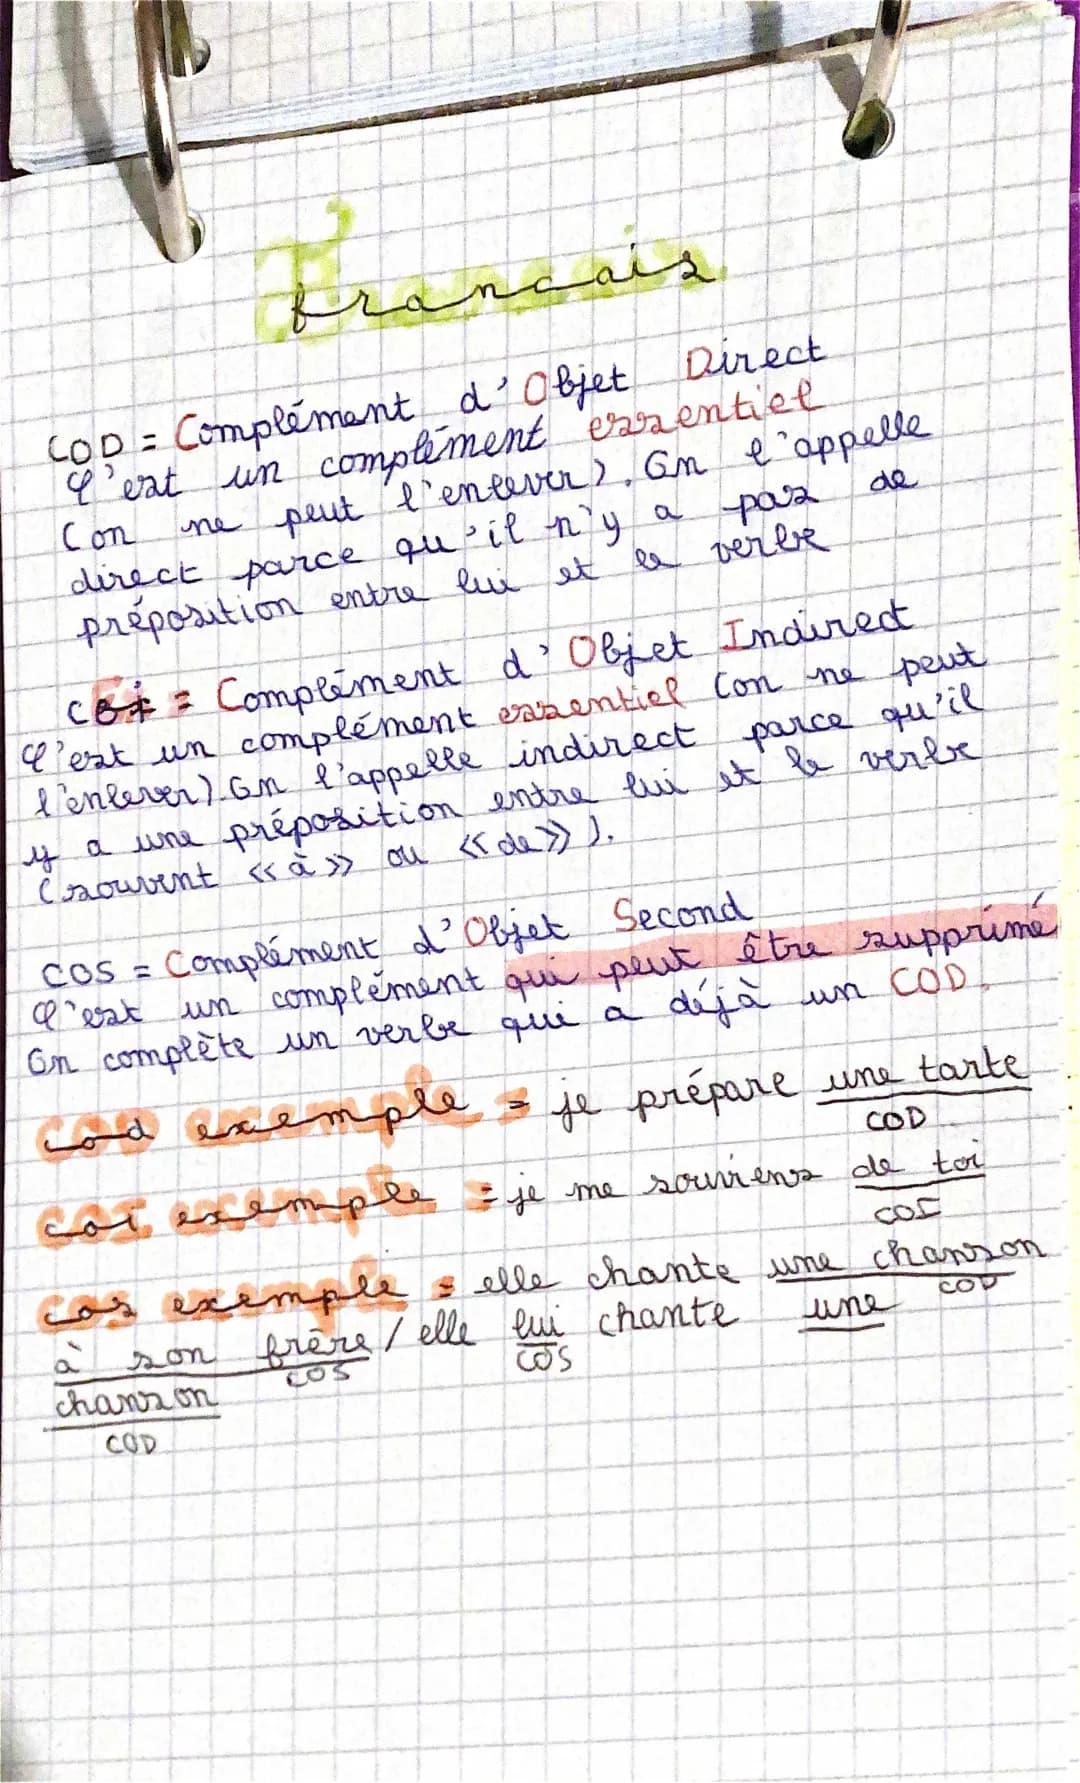 Francais
COD = Complément d'Objet Direct
C'est un complément essentiel
(on ne peut l'enlever). On l'appelle
direct parce qu'il n'y a pas de
préposition entre lui et le verbe
COI = Complément d'Objet Indirect
C'est un complément essentiel (on ne peut
l'enlever). On l'appelle indirect parce qu'il
y a une préposition entre lui et le verbe
(souvent «à» ou «de»).
COS = Complément d'Objet Second
C'est un complément qui peut être supprimé
On complète un verbe qui a déjà un COD.
cod exemple = je prépare une tarte
COD
coi exemple = je me souviens de toi
COI
cos exemple = elle chante une chanson
COD
à son frère / elle lui chante une
COS COS
chanson
COD